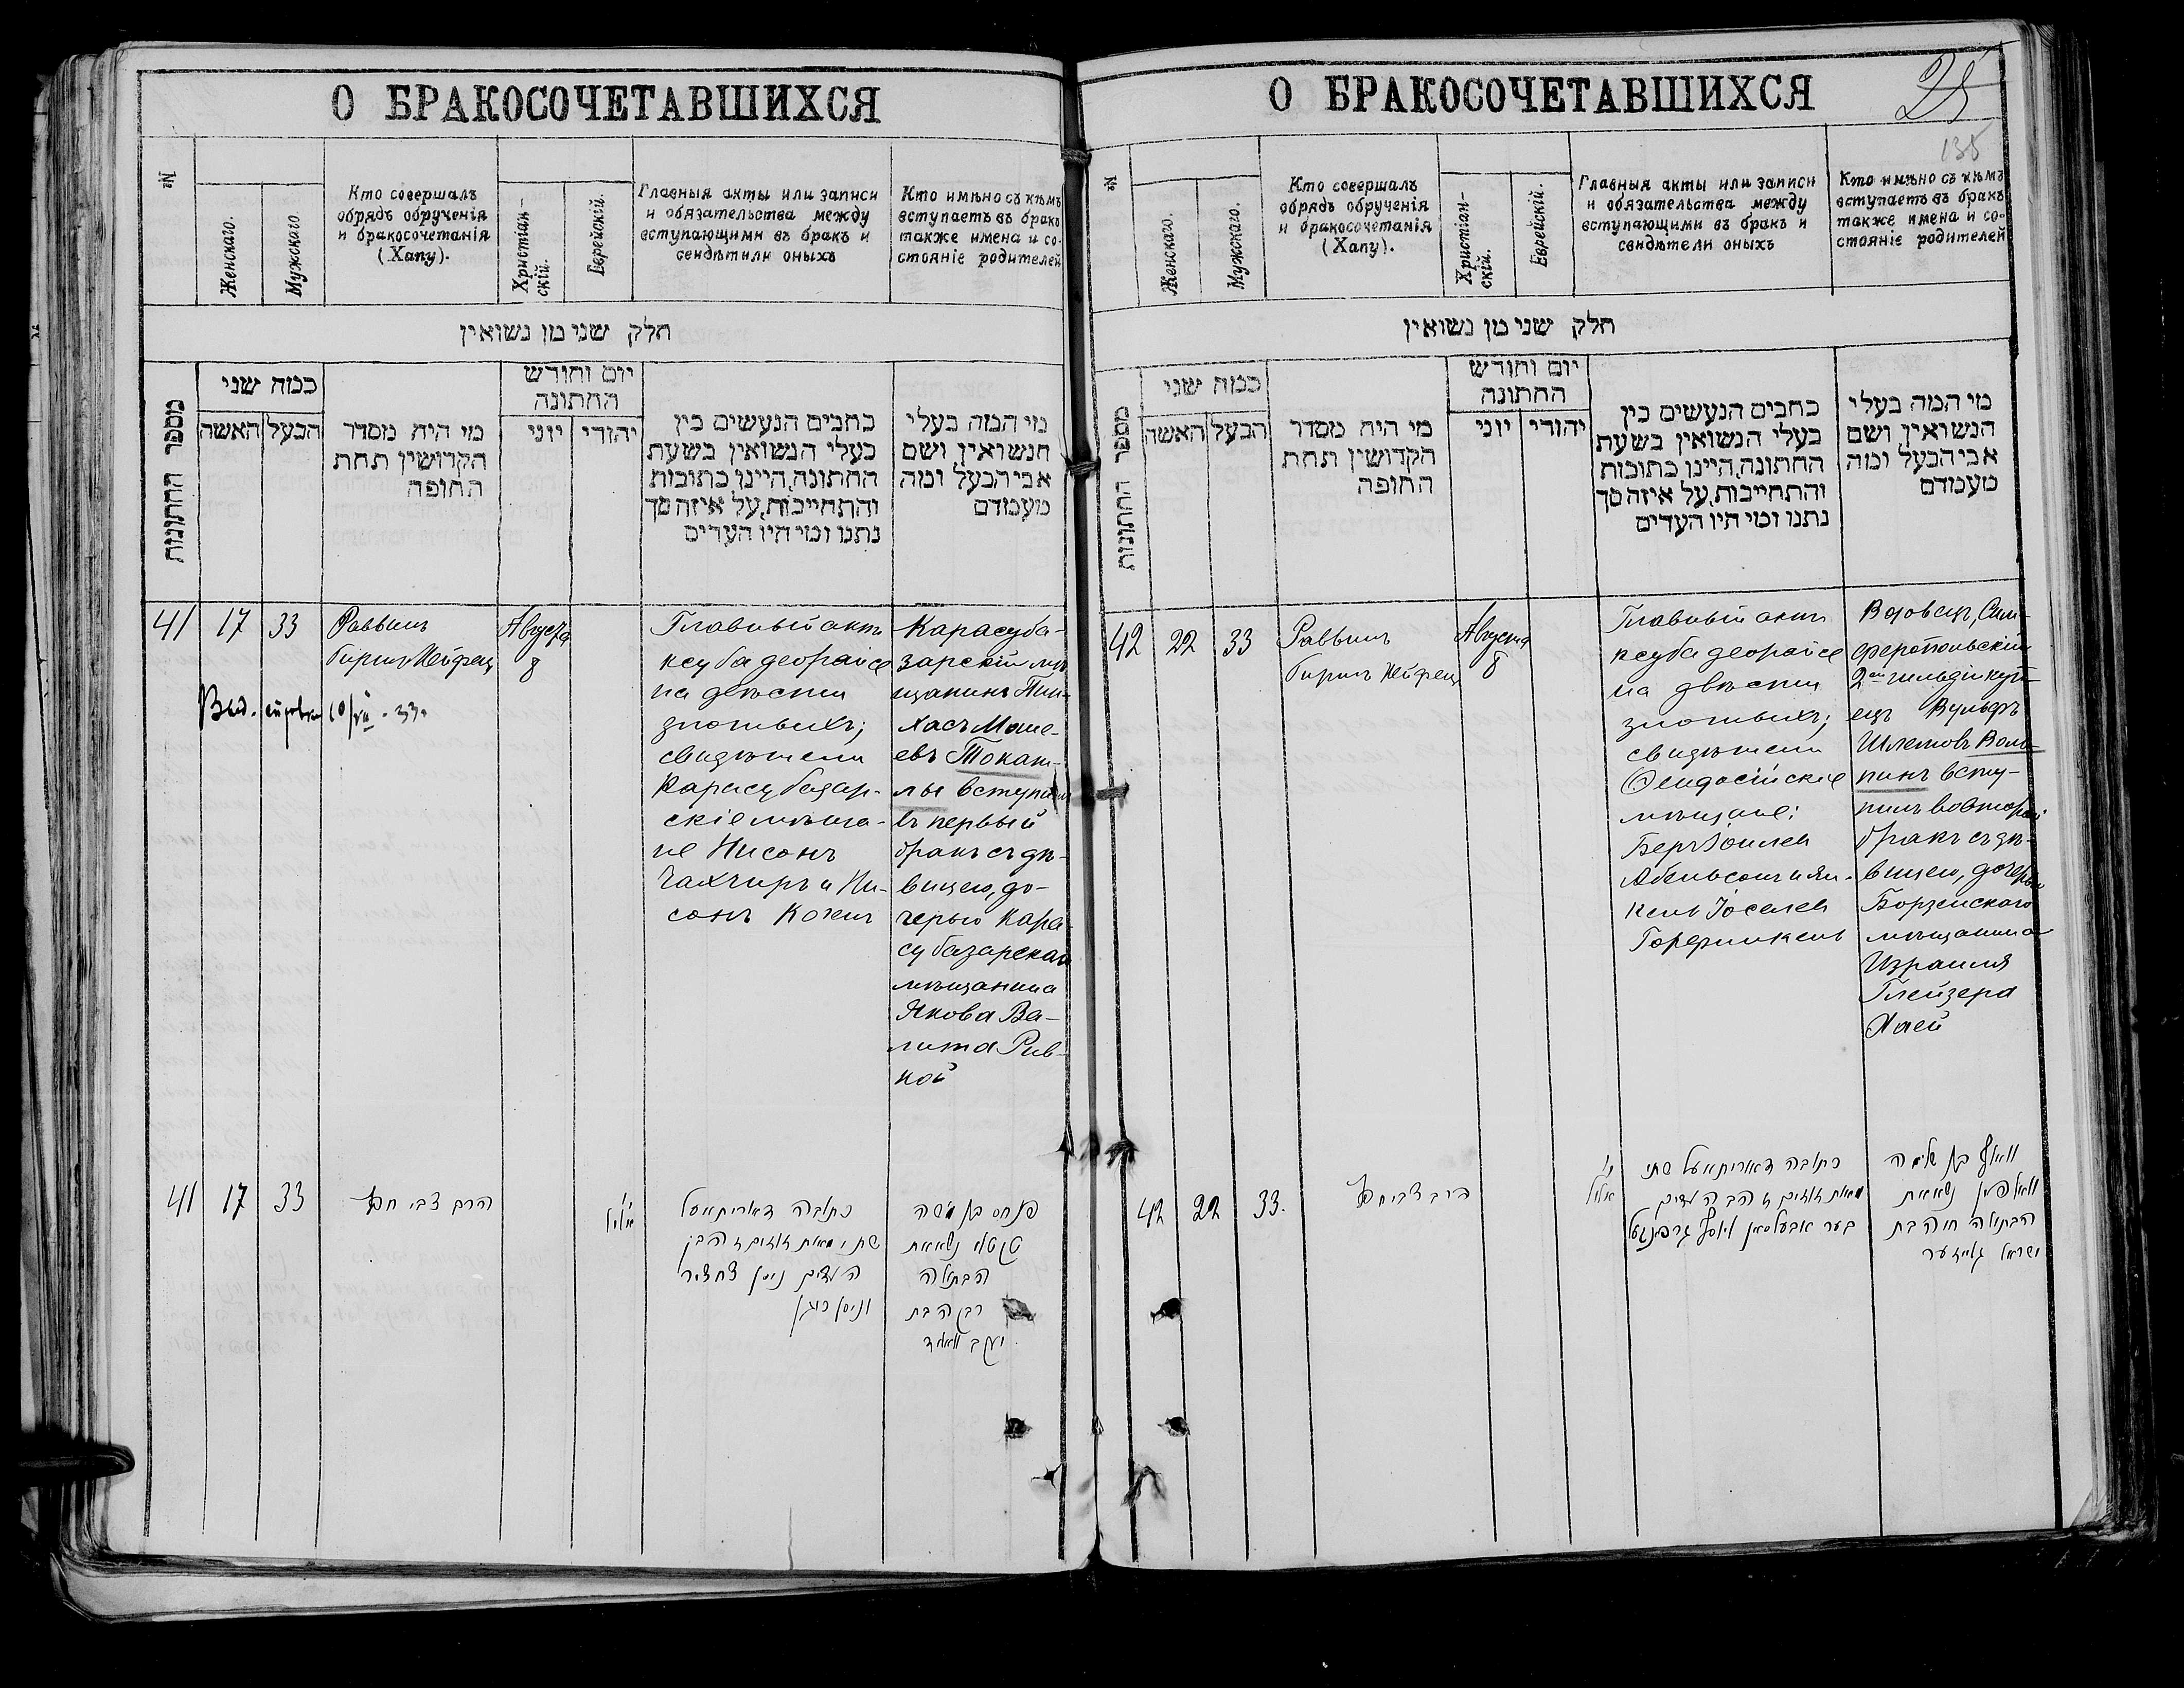 О БРАКОСОЧЕТАВШИХСЯ
№
Женскаго.
Мужскаго
Кто совершалъ
обрядъ обрученія
и бракосочетанія
(Хапу).
Христіан-
скій.
Еврейскій.
Главныя акты или записи
и обязательства между
вступающими въ бракъ и
свидѣтили оныхъ
Кто имѣно съ кѣмъ
вступаетъ въ бракъ
также имена и со-
стояніе родителей
חלק שני מן נשואין
מספר החתונות
כמה שני
האשה
הבעל
מי היה מסדר
הקדושין תחת
החופה
יום וחודש
החתונה
יוני
יהודי
כתבים הנעשים בין
בעלי הנשואין בשעת
החתונה, היינו כתובות
והתחייבות, על איזה סך
נתנו ומי היו העדים
מי המה בעלי
הנשואין ושם
אבי הבעל ומה
מעמדם
41
17
33
Раввинъ
Гиршъ Хейфецъ
Августа
8
Главный актъ
ксуба деорайсе
на двѣсти
злотыхъ;
свидѣтели
Карасубазар-
скіе мѣща-
не Нисонъ
Чахчиръ и Ни-
сонъ Когенъ
Карасуба-
зарскій мѣ-
щанинъ Пин-
хасъ Моше-
евъ Токат-
лы вступилъ
въ первый
бракъ съ дѣ-
вицею, до-
черью Кара-
субазарскаго
мѣщанина
Якова Ва-
лита Рив-
кой
41
17
33
הרב צבי חפץ
אלול
כתובה דאוריתא על
שתי מאות זוזים זהב
העדים ניסן צחציר
וניסן כוגן
פנחס בן משה
טקטלי נשא את
הבתולה
רבקה בת
יעקב וואליד
О БРАКОСОЧЕТАВШИХСЯ
25
135
№
Женскаго.
Мужскаго.
Кто совершалъ
обрядъ обрученія
и бракосочетанія
(Хапу).
Христіан-
скій.
Еврейскій.
Главныя акты или записи
и обязательства между
вступающими въ бракъ и
свидѣтели оныхъ
Кто имѣно съ кѣмъ
вступаетъ въ бракъ
также имена и со-
стояніе родителей
חלק שני מן נשואין
מספר החתונות
כמה שני
האשה
הבעל
מי היה מסדר
הקדושין תחת
החופה
יום וחודש
החתונה
יוני
יהודי
כתבים הנעשים בין
בעלי הנשואין בשעת
החתונה, היינו כתובות
והתחייבות, על איזה סך
נתנו ומי היו העדים
מי המה בעלי
הנשואין ושם
אבי הבעל ומה
מעמדם
42
22
33
Раввинъ
Гиршъ Хейфецъ
Августа
8
Главный актъ
ксуба деорайсе
на двѣсти
злотыхъ;
свидѣтели
Ѳеодосійскіе
мѣщане:
Беръ
Абельсонъ и Ян-
кель Іоселевъ
Горфинкель
Вдовецъ, Сим-
феропольскій
2ой гильдіи куп-
ецъ Вульфъ
Шлемовъ Воль-
пинъ всту-
пилъ во второй
бракъ съ дѣ-
вицею, дочерью
Борзенскаго
мѣщанина
Израиля
Глейзера
Хаей
42
22
33.
הרב צבי חפץ
אלול
כתובה דאוריתא על שתי
מאות זוזים זהב העדים
בער אבעלסאן
וואלף בן שלמה
וואלפין נשא את
הבתולה חיה בת
ישראל גלייזער